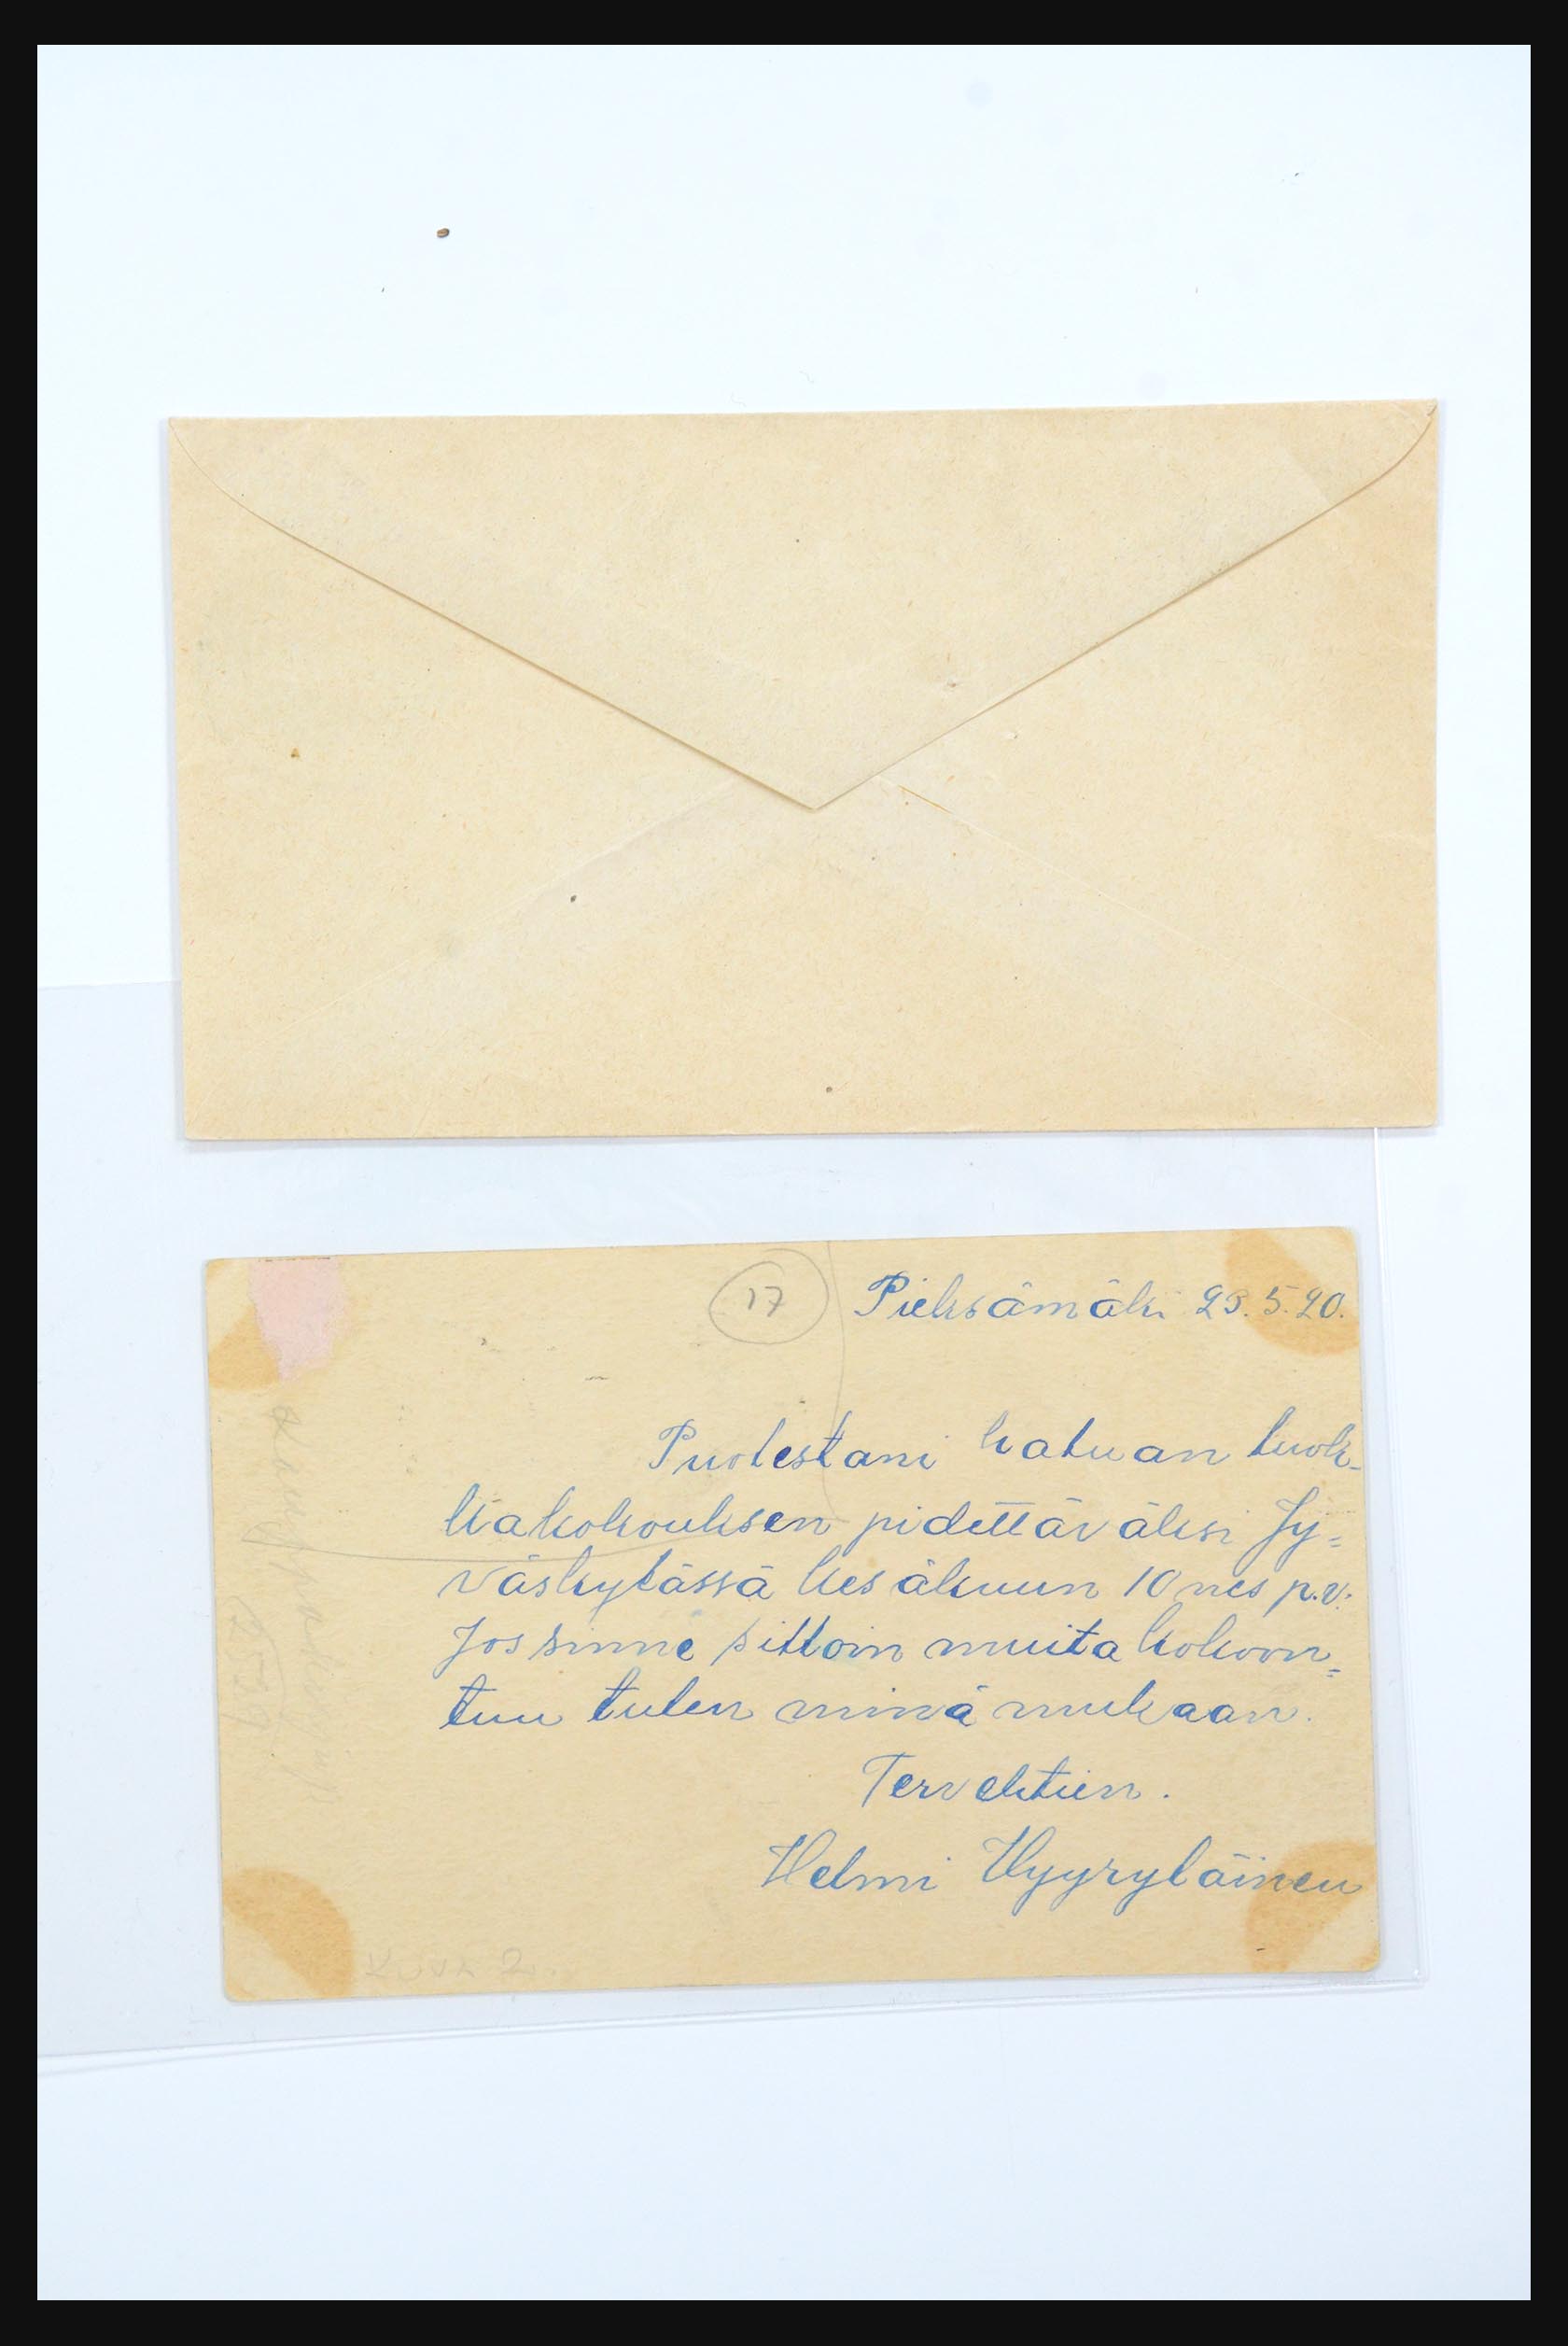 17
Pieksämäki 23.5.20.
Puolestani haluan luok-
kakokouksen pidettäväksi Jy=
väskylässä kesäkuun 10 nes p.v.
Jos sinne silloin muita kokoon=
tuu tulen minä mukaan.
Tervehtien.
Helmi Hyyryläinen
KUVA 2.